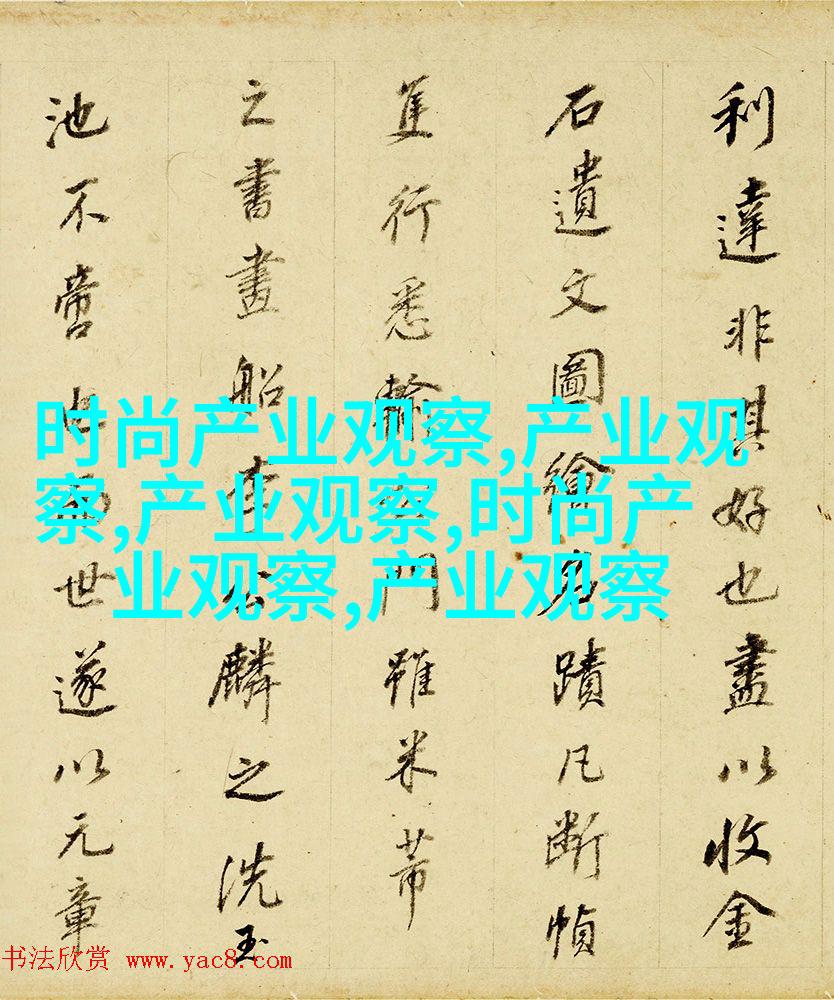 利達非其好也盡以收金
石遺文圖繪名蹟凡断幀
隻行悉輸門雖米芾
之書畫船李公麟之洗玉
池不啻世遂以元章
时尚产业观察,产业观
察,产业观察,时尚产
业观察,产业观察
书法欣赏 www.yac8.com